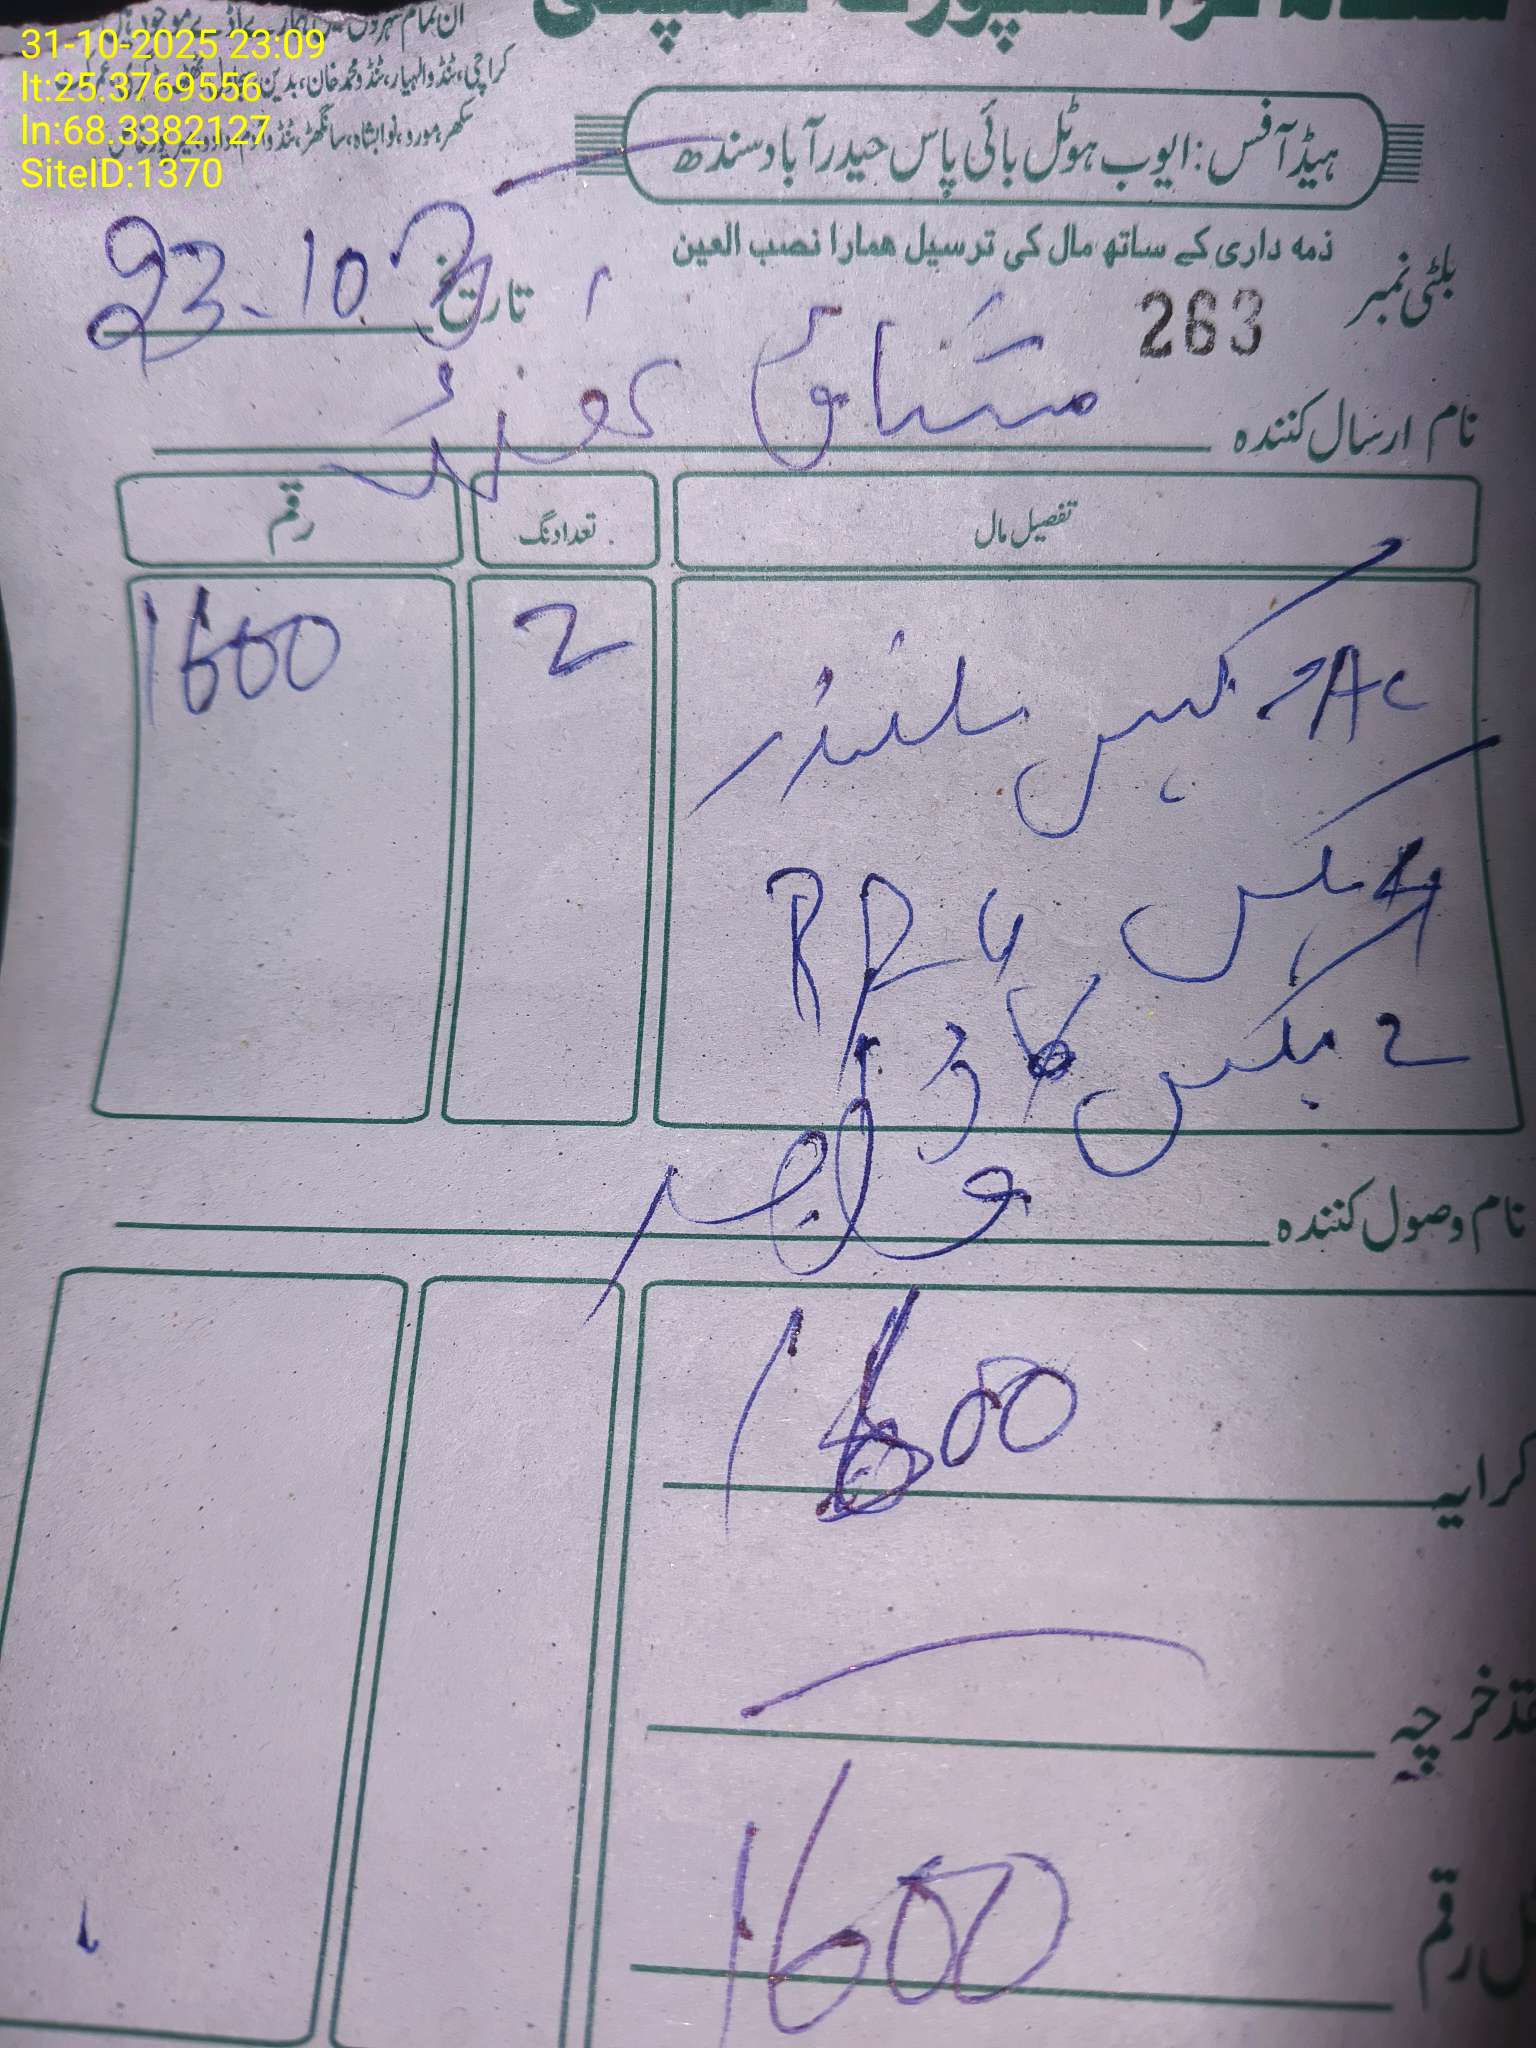 31-10-2025 23:09
lt:25.3769556
ln:68.3382127
SiteID:1370
ان تمام شہروں
کراچی، ٹنڈوالہیار، ٹنڈومحمدخان، بدین
سکھر، مورو، نوابشاہ، سانگھڑ، ٹنڈوآدم
ہیڈ آفس : ایوب ہوٹل بائی پاس حیدرآباد سندھ
ذمہ داری کے ساتھ مال کی ترسیل ہمارا نصب العین
بلٹی نمبر 263
تاریخ 23-10
نام ارسال کنندہ مشتاق
تفصیل مال تعداد نگ رقم
2 AC گیس سلنڈر 2 1600
بکس RR
2 بکس
نام وصول کنندہ
کرایہ 1600
خرچہ
رقم 1600